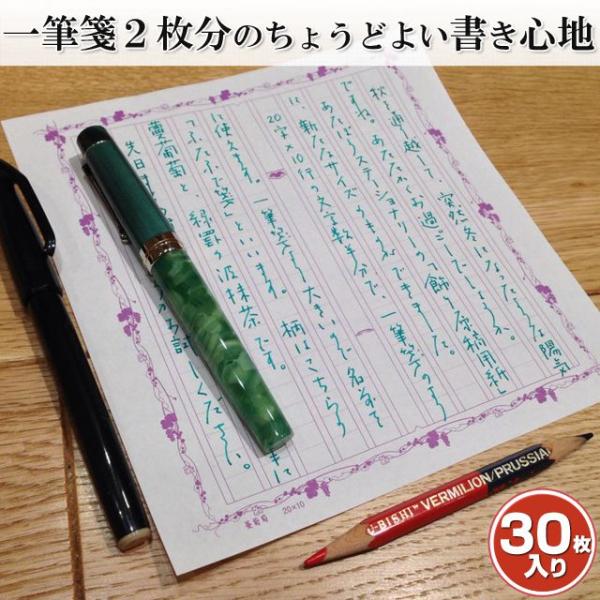 一筆箋2枚分のちょうどよい書き心地
秋を通り越して、突然冬になったような陽気
ですね。あたたかくお過ごしでしょうか。
あたぼうステーショナリーの、「飾り原稿用紙」
に、新たなサイズのものができました。
20字×10行の文字数半分で、一筆箋のよう
に使えます。一筆箋より大きいので名前を
「ふたふで箋」といいます。柄はこちらの
蔓葡萄と、緑罫の波抹茶です。
先日 お試しください。
蔓葡萄 20×10
U-BISHI VERMILION/PRUSSIA
30枚
入り